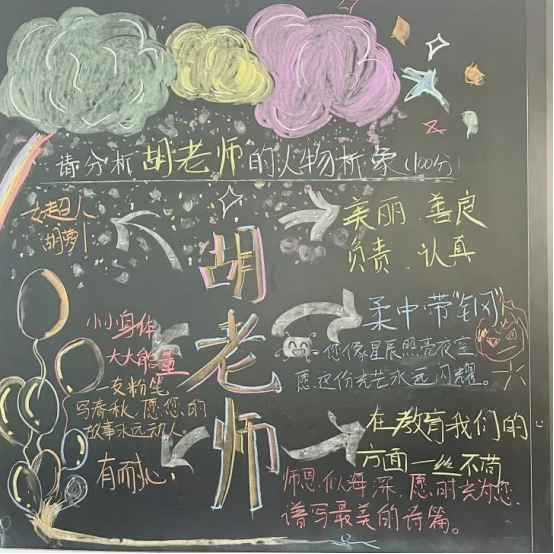 请分析胡老师的人物析象(100分)
女超人
胡萝卜
美丽、善良
负责、认真
胡老师
柔中带"钢"
您像星辰照亮夜空
愿这份光芒永远闪耀。
小小身体
大大能量
一支粉笔
写春秋,愿您的
故事永远动人。
有耐心!
在教育我们的
方面一丝不苟
师恩似海深,愿时光为您
谱写最美的诗篇。